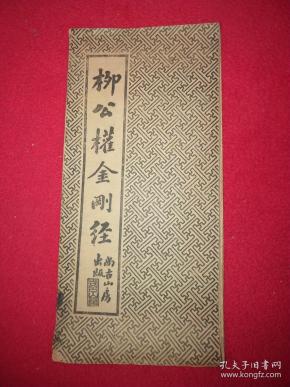 柳公權金剛経
尚古山房
出版
孔夫子旧书网